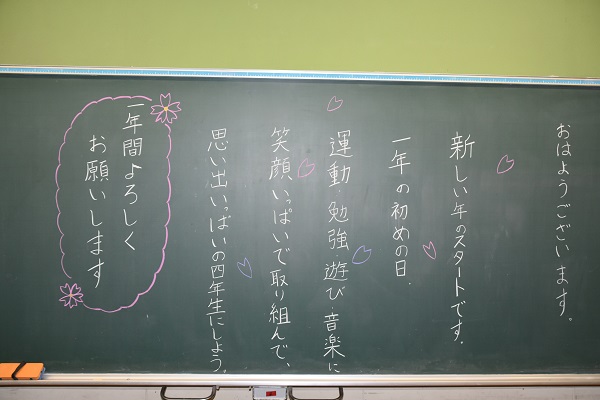 おはようございます。
新しい年のスタートです。
一年の初めの日。
運動・勉強・遊び・音楽に
笑顔いっぱいで取り組んで、
思い出いっぱいの四年生にしよう。
一年間よろしく
お願いします